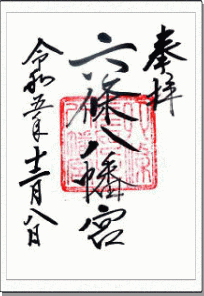 奉拝
六條八幡宮
令和五年十二月八日